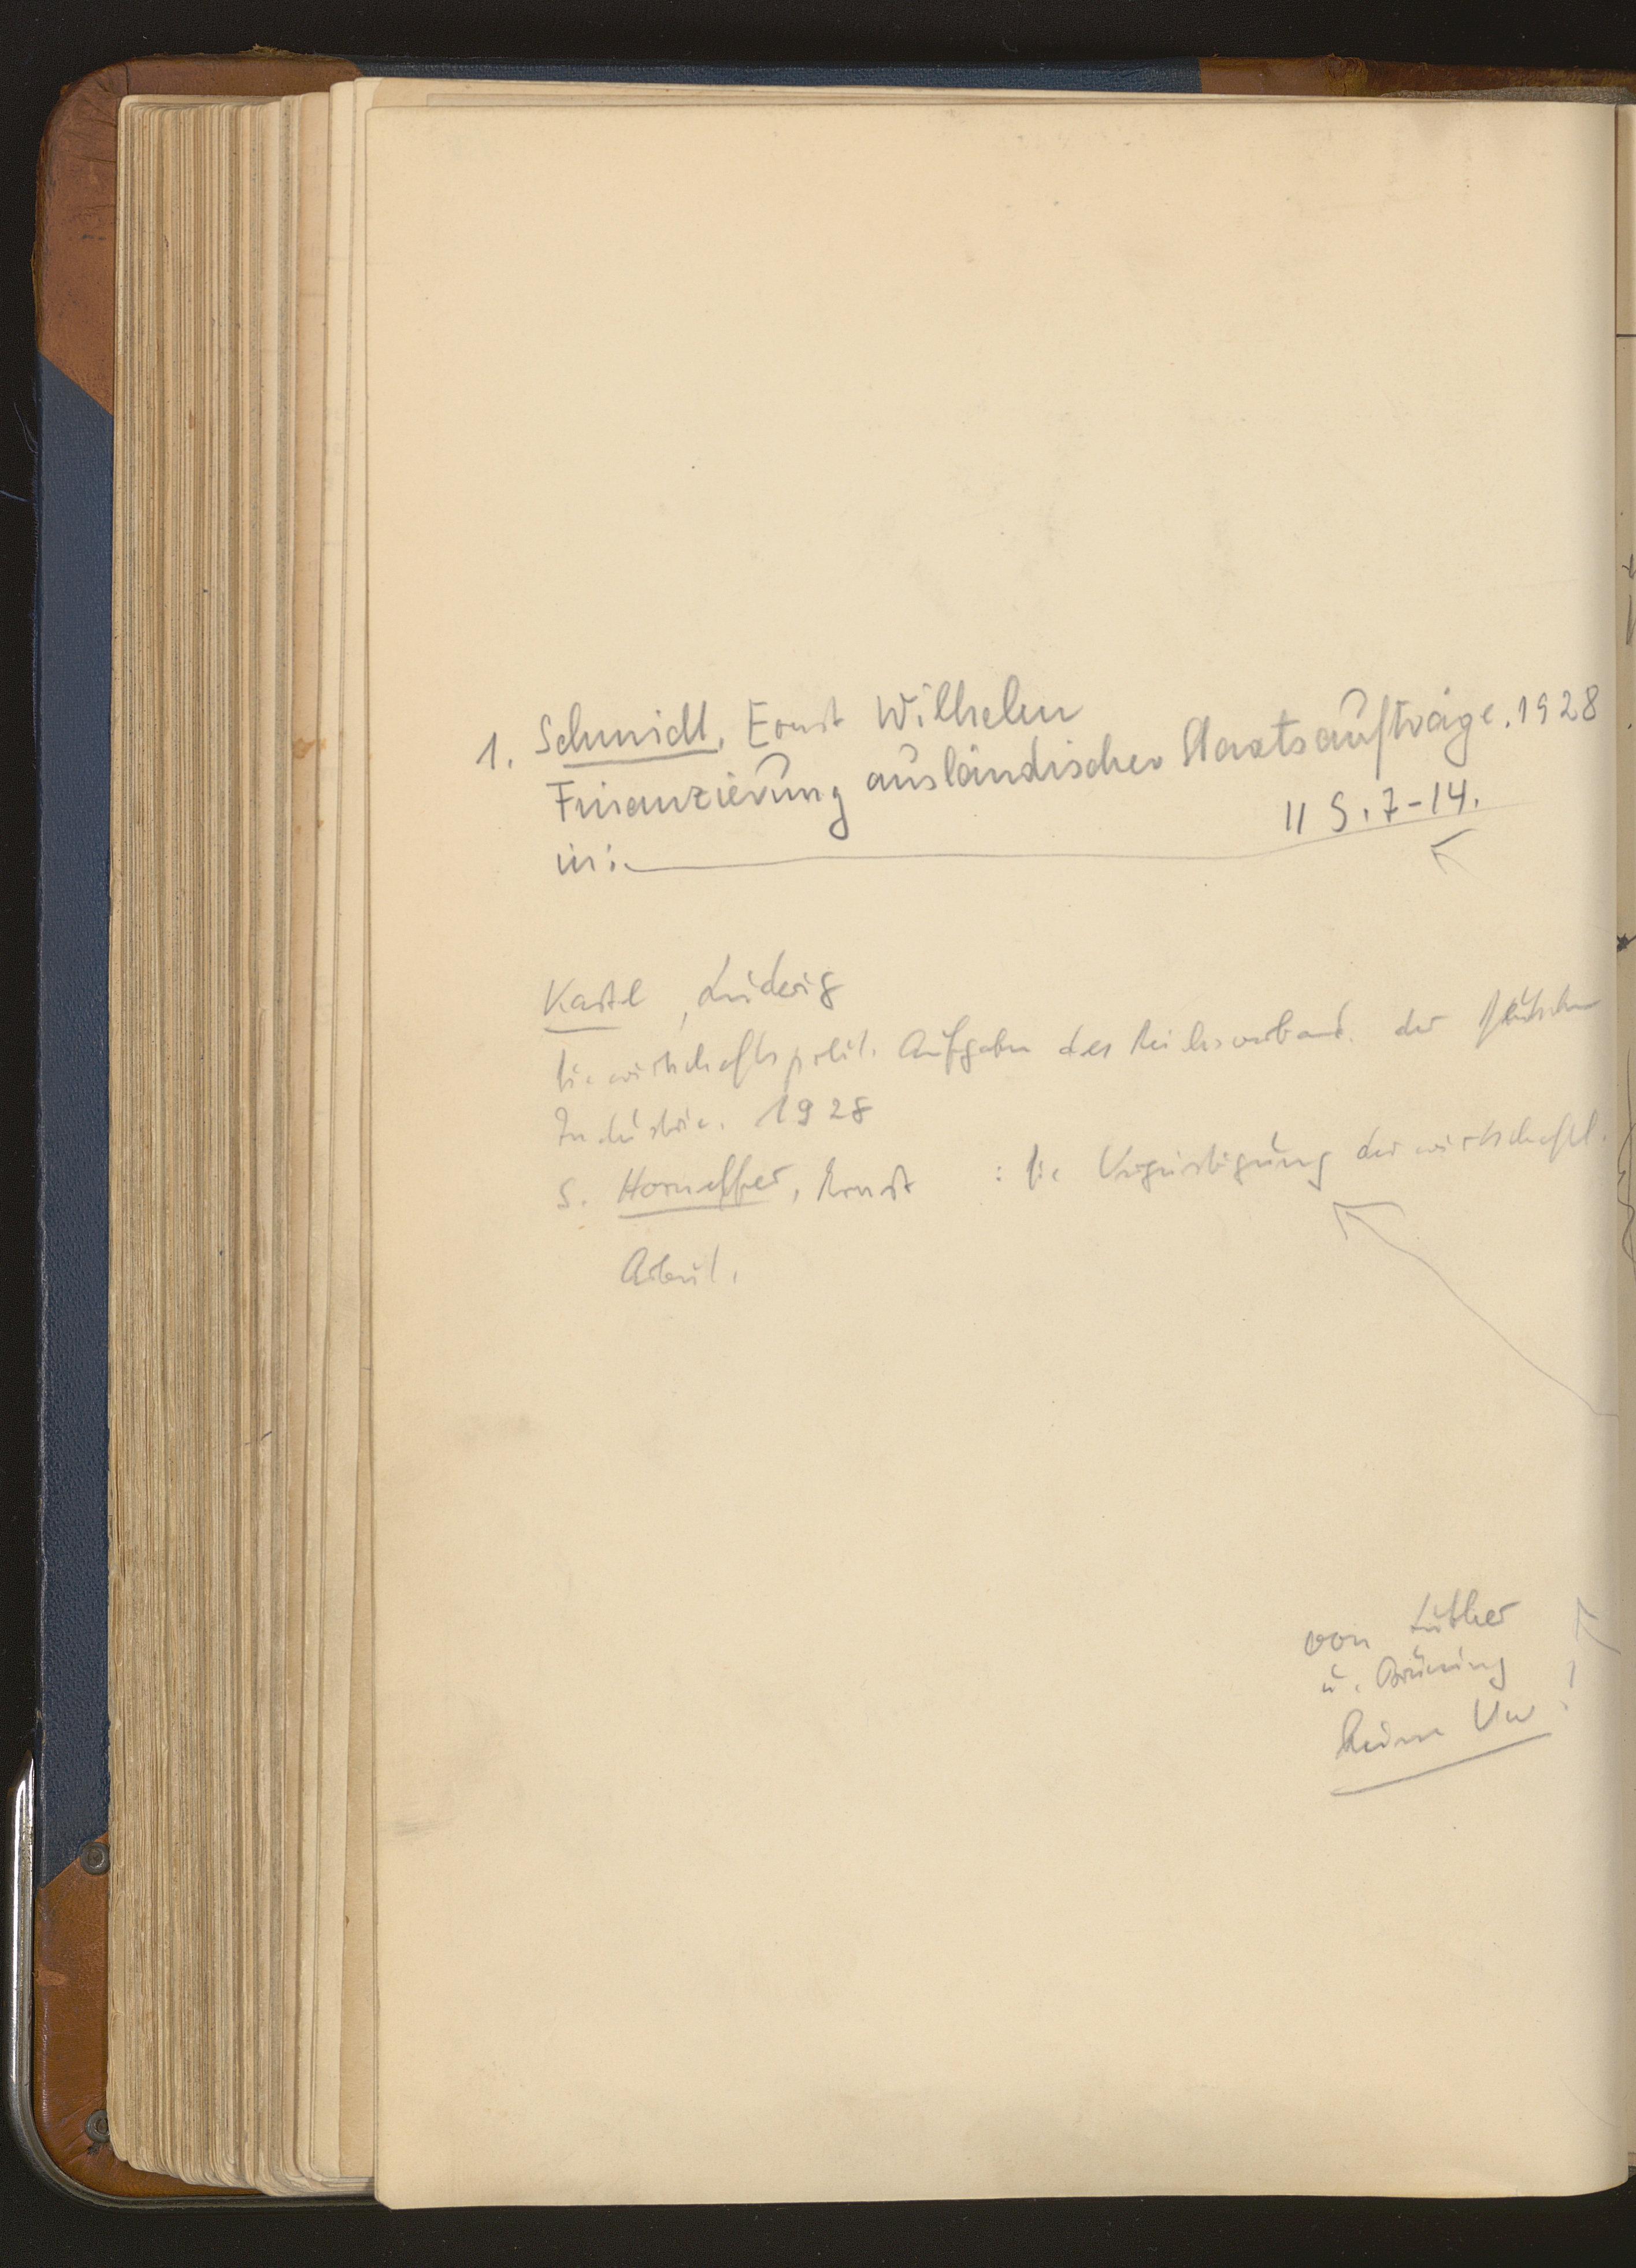 1. Schmidt, Ernst Wilhelm
Finanzierung ausländischer Staatsaufträge. 1928
in: 11 S. 7-14.
Kastl, Ludwig
Die wirtschaftspolit. Aufgaben des Reichsverband. der Deutschen
Industrie. 1928
S. Horneffer, Ernst : Die Vergeistigung der wirtschaftl.
Arbeit.
von Luther
u. Brüning
Keine Vw !